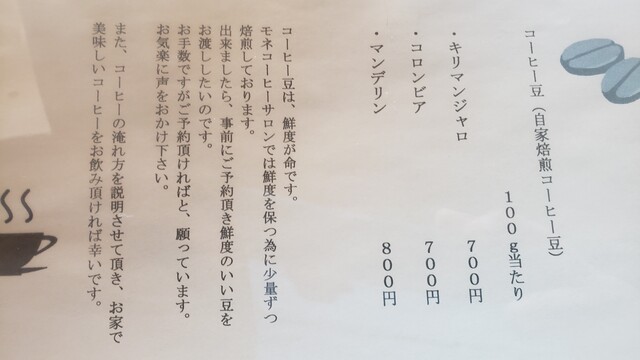 コーヒー豆（自家焙煎コーヒー豆）
１００ｇ当たり
・キリマンジャロ　７００円
・コロンビア　７００円
・マンデリン　８００円
コーヒー豆は、鮮度が命です。
モネコーヒーサロンでは鮮度を保つ為に少量ずつ
焙煎しております。
出来ましたら、事前にご予約頂き鮮度のいい豆を
お渡ししたいのです。
お手数ですがご予約頂ければと、願っています。
お気楽に声をおかけ下さい。
また、コーヒーの淹れ方を説明させて頂き、お家で
美味しいコーヒーをお飲み頂ければ幸いです。